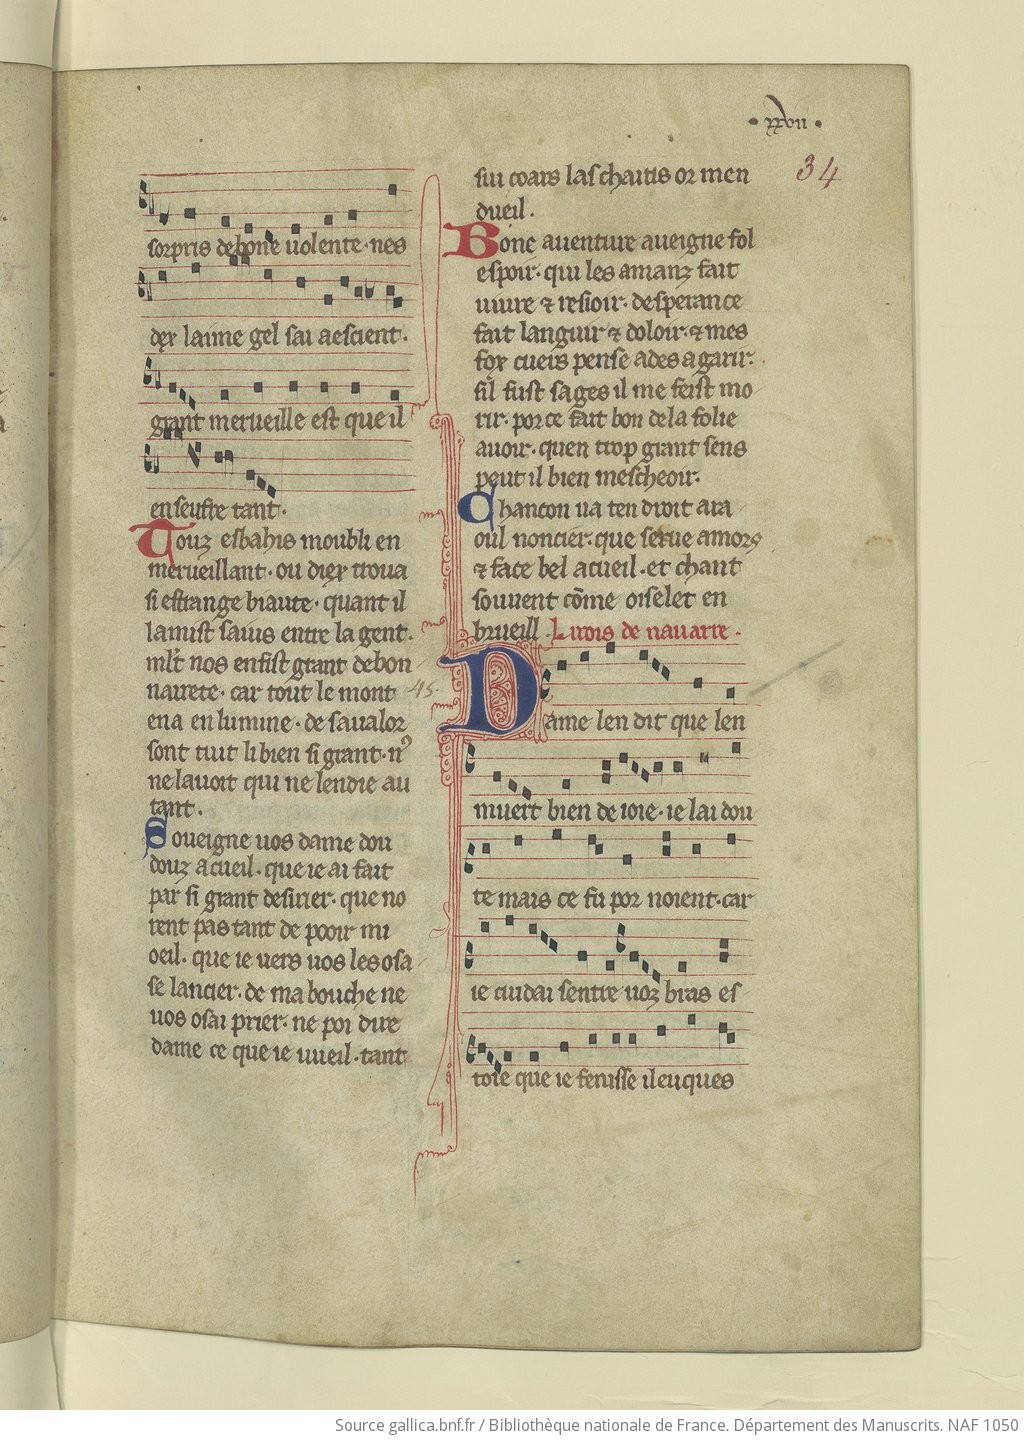 · xxvii ·
34
sorpris de bone uolente · nes
dex laime gel sai aescient ·
grant merueille est que il
enseufre tant ·
Touz esbahis moubli en
merueillant · ou diex troua
si estrange biaute · quant il
lamist saius entre la gent ·
mlt nos enfist grant debon
nairete · car tout le mont
ena en lumine · de sa ualor
sont tuit li bien si grant · nꝰ
ne lauoit qui ne lendie au
tant .
Soueigne uos dame dou
douz acueil · que ie ai fait
par si grant desirier · que no
rent pas tant de pooir mi
oeil · que ie uers uos les osa
se lancier · de ma bouche ne
uos osai prier · ne poi dire
dame ce que ie uueil · tant
sui coars las chaitis or men
dueil .
Bone auenture aueigne fol
espoir · qui les amanz fait
uiure ⁊ resioir · desperance
fait languir ⁊ doloir · ⁊ mes
fox cuers pense ades a garir ·
sil fust sages il me feist mo
rir · por ce fait bon de la folie
auoir · quen trop grant sens
peut il bien mescheoir ·
Chancon ua ten droit a ra
oul noncier · que serue amors
⁊ face bel acueil · et chant
souuent cōme oiselet en
brueill · Li rois de nauarre ·
45 ·
Dame len dit que len
muert bien de ioie · ie lai dou
te mais ce fu por noient · car
ie cuidai sentre uoz bras es
toie que ie fenisse ileuques
Source gallica.bnf.fr / Bibliothèque nationale de France. Département des Manuscrits. NAF 1050